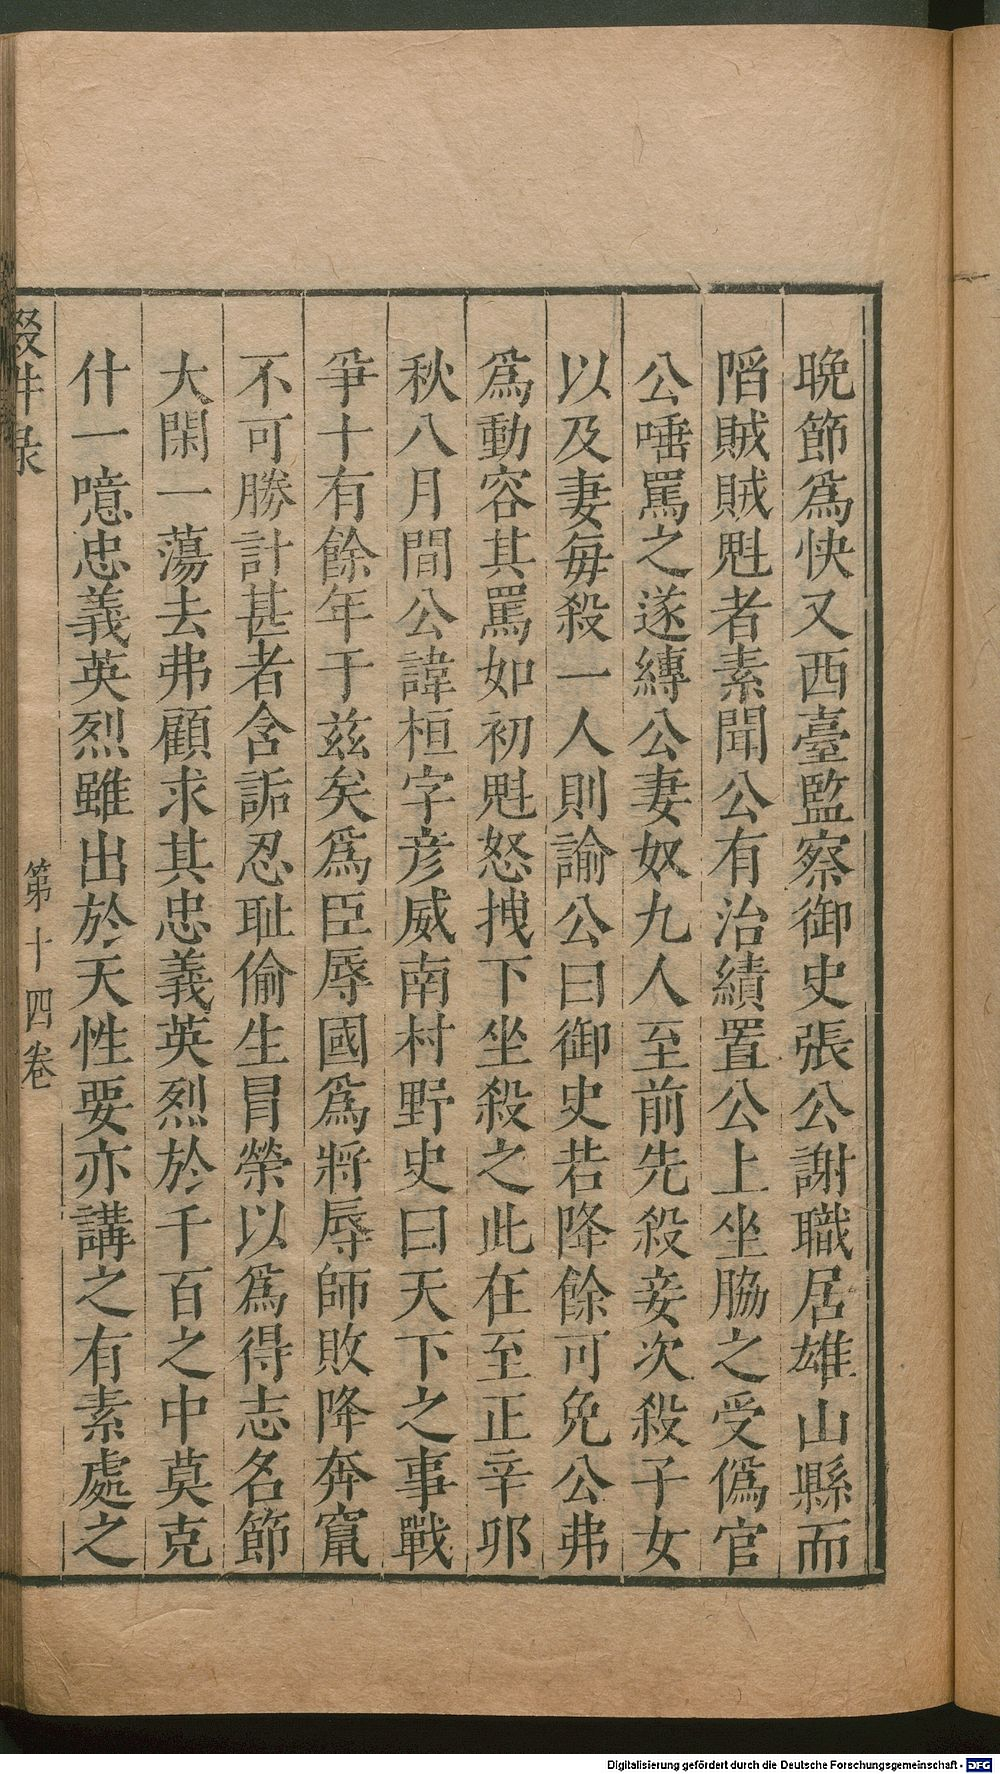 晚節爲快又西臺監察御史張公謝職居雄山縣而
陷賊賊魁者素聞公有治績置公上坐脇之受僞官
公唾罵之遂縛公妻奴九人至前先殺妾次殺子女
以及妻每殺一人則諭公曰御史若降餘可免公弗
爲動容其罵如初魁怒拽下坐殺之此在至正辛卯
秋八月間公諱桓字彦威南村野史曰天下之事戰
爭十有餘年于兹矣爲臣辱國爲將辱師敗降奔竄
不可勝計甚者含詬忍耻偷生冒榮以爲得志名節
大閑一蕩去弗顧求其忠義英烈於千百之中莫克
什一噫忠義英烈雖出於天性要亦講之有素處之
輟耕录
第十四卷
Digitalisierung gefördert durch die Deutsche Forschungsgemeinschaft - DFG